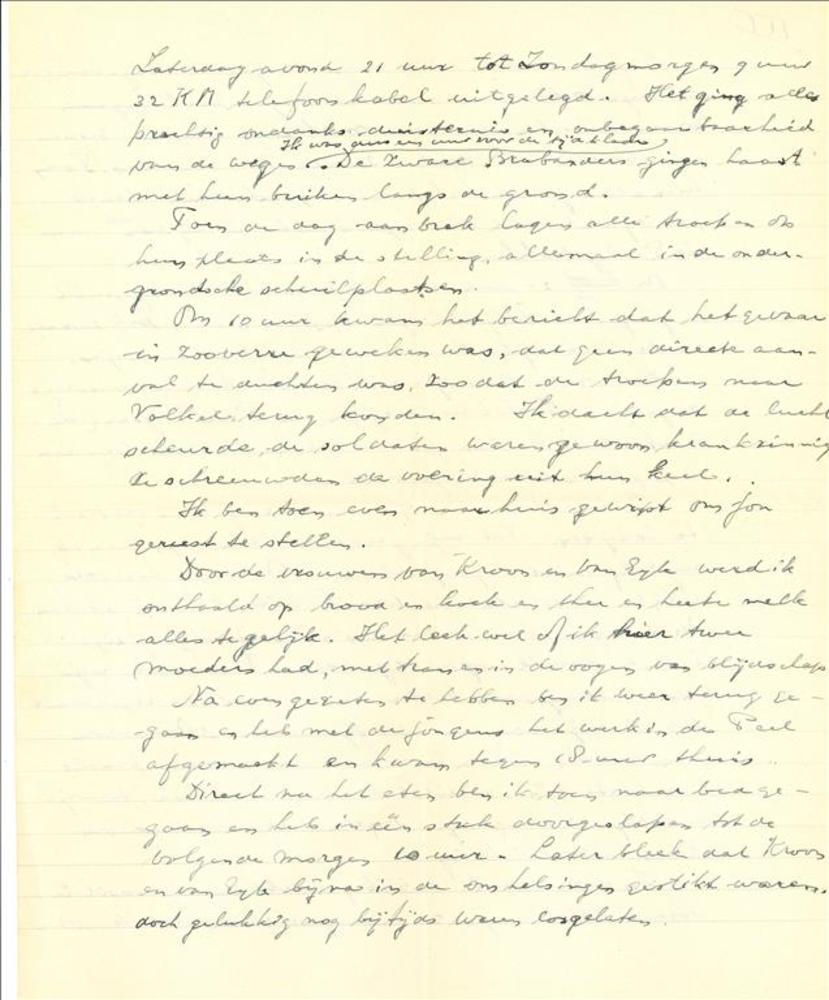 Zaterdag avond 21 uur tot Zondagmorgen 9 uur
32 KM telefoonkabel uitgelegd. Het ging alles
prachtig ondanks duisternis en onbegaanbaarheid
Ik was ruim een uur voor de tijd klaar
van de wegen. De zware Brabanders gingen haast
met hun buiken langs de grond.
Toen de dag aanbrak lagen alle troepen op
hun plaats in de stelling, allemaal in de onder-
grondsche schuilplaatsen.
Om 10 uur kwam het bericht dat het gevaar
in zooverre geweken was, dat geen directe aan-
val te duchten was, zoodat de troepen naar
Volkel terug konden. Ik dacht dat de lucht
scheurde, de soldaten waren gewoon krankzinnig
Ze schreeuwden de voering uit hun keel.
Ik ben toen even naar huis gewipt om Jou
gerust te stellen.
Door de vrouwen van Kroon en van Eyk werd ik
onthaald op brood en koek en thee en heete melk
alles tegelijk. Het leek wel of ik hier twee
moeders had, met tranen in de oogen van blijdschap
Na wat gegeten te hebben ben ik weer terug ge-
-gaan en heb met de jongens het werk in de Peel
afgemaakt en kwam tegen 18 uur thuis.
Direct na het eten ben ik toen naar bed ge-
gaan en heb in één stuk doorgeslapen tot de
volgende morgen 10 uur. Later bleek dat Kroon
en van Eyk bijna in de omhelsingen gestikt waren.
doch gelukkig nog bijtijds waren losgelaten.